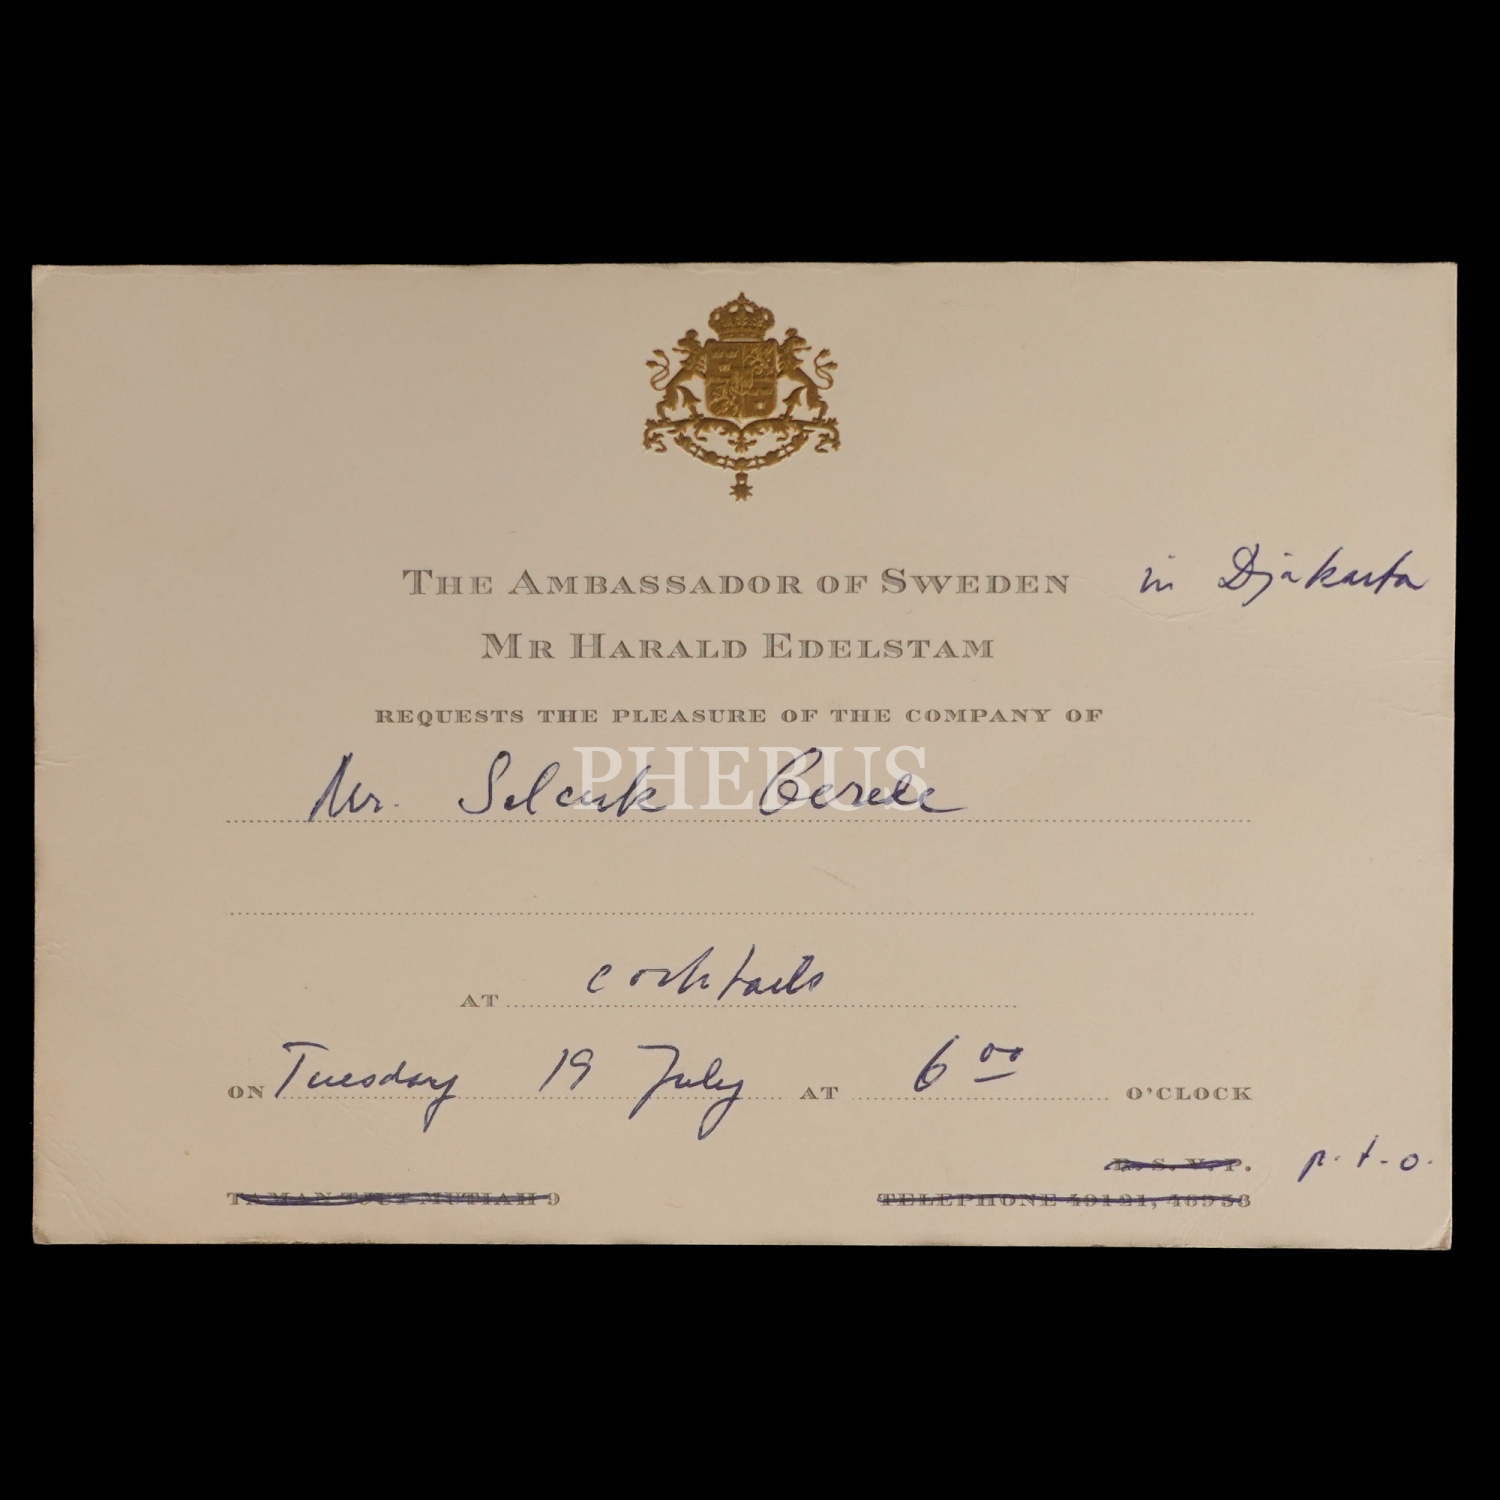 THE AMBASSADOR OF SWEDEN in Djakarta
MR HARALD EDELSTAM
REQUESTS THE PLEASURE OF THE COMPANY OF
PHEBUS
Mr. Selcuk Cerede
AT cocktails
ON Tuesday 19 July AT 6 00 O'CLOCK
R. S. V. P. p.t.o.
TAMAN TJUT MUTIAH 9 TELEPHONE 49121, 46953